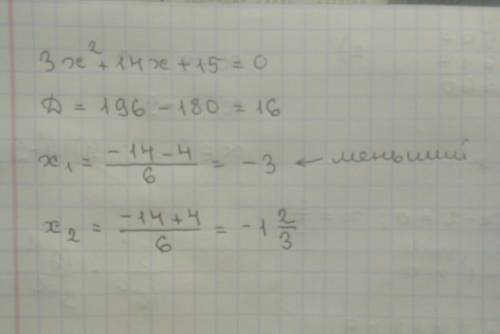 3x² + 14x + 15 = 0
Д = 196 - 180 = 16
x₁ = \frac{-14-4}{6} = -3 ← меньший
x₂ = \frac{-14+4}{6} = -1\frac{2}{3}